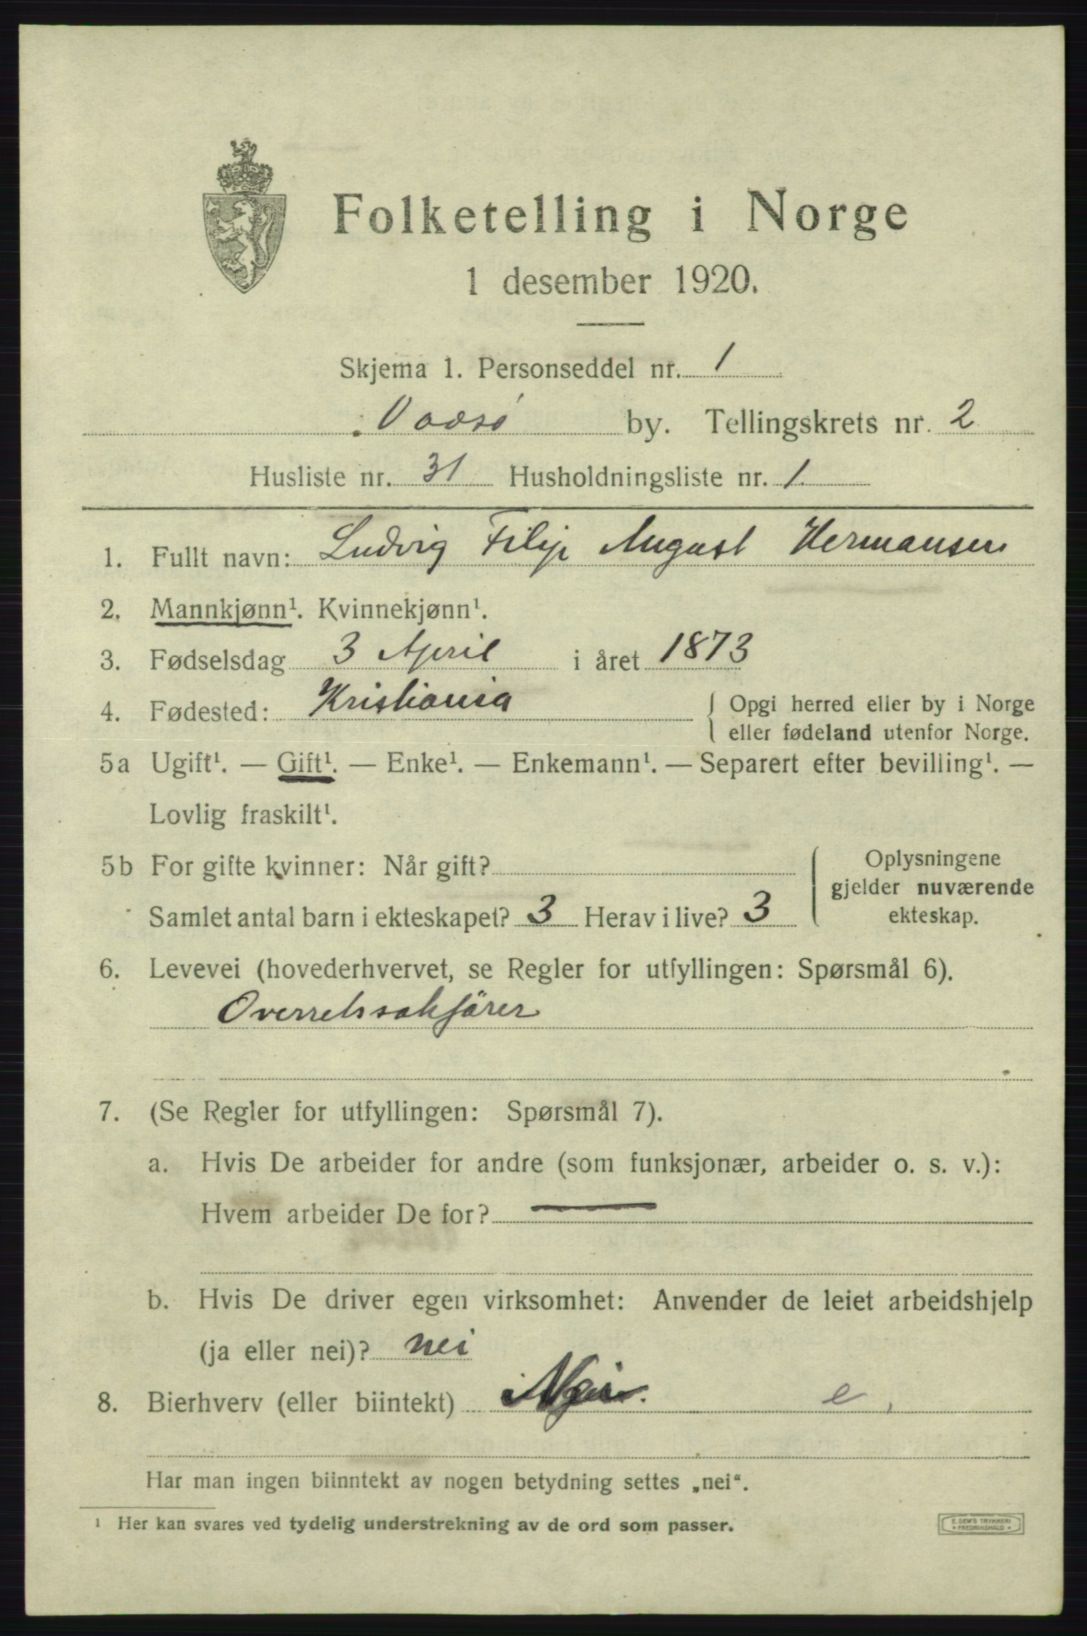 Folketelling i Norge
1 desember 1920.
Skjema 1. Personseddel nr. 1
Vadsø by. Tellingskrets nr. 2
Husliste nr. 31 Husholdningsliste nr. 1.
1. Fullt navn: Ludvig Filip August Hermansen
2. Mannkjønn¹. Kvinnekjønn¹.
3. Fødselsdag 3 April i året 1873
4. Fødested: Kristiania { Opgi herred eller by i Norge
eller fødeland utenfor Norge.
5a Ugift¹. — Gift¹. — Enke¹. — Enkemann¹. — Separert efter bevilling¹. —
Lovlig fraskilt¹.
5b For gifte kvinner: Når gift?
Samlet antal barn i ekteskapet? 3 Herav i live? 3
Oplysningene
gjelder nuværende
ekteskap.
6. Levevei (hovederhvervet, se Regler for utfyllingen: Spørsmål 6).
Overretssakfører
7. (Se Regler for utfyllingen: Spørsmål 7).
a. Hvis De arbeider for andre (som funksjonær, arbeider o. s. v.):
Hvem arbeider De for? —
b. Hvis De driver egen virksomhet: Anvender de leiet arbeidshjelp
(ja eller nei)? nei
8. Bierhverv (eller biintekt) Nei. e
Har man ingen biinntekt av nogen betydning settes „nei“.
¹ Her kan svares ved tydelig understrekning av de ord som passer.
E. SEM'S TRYKKERI
• FREDRIKSHALD •